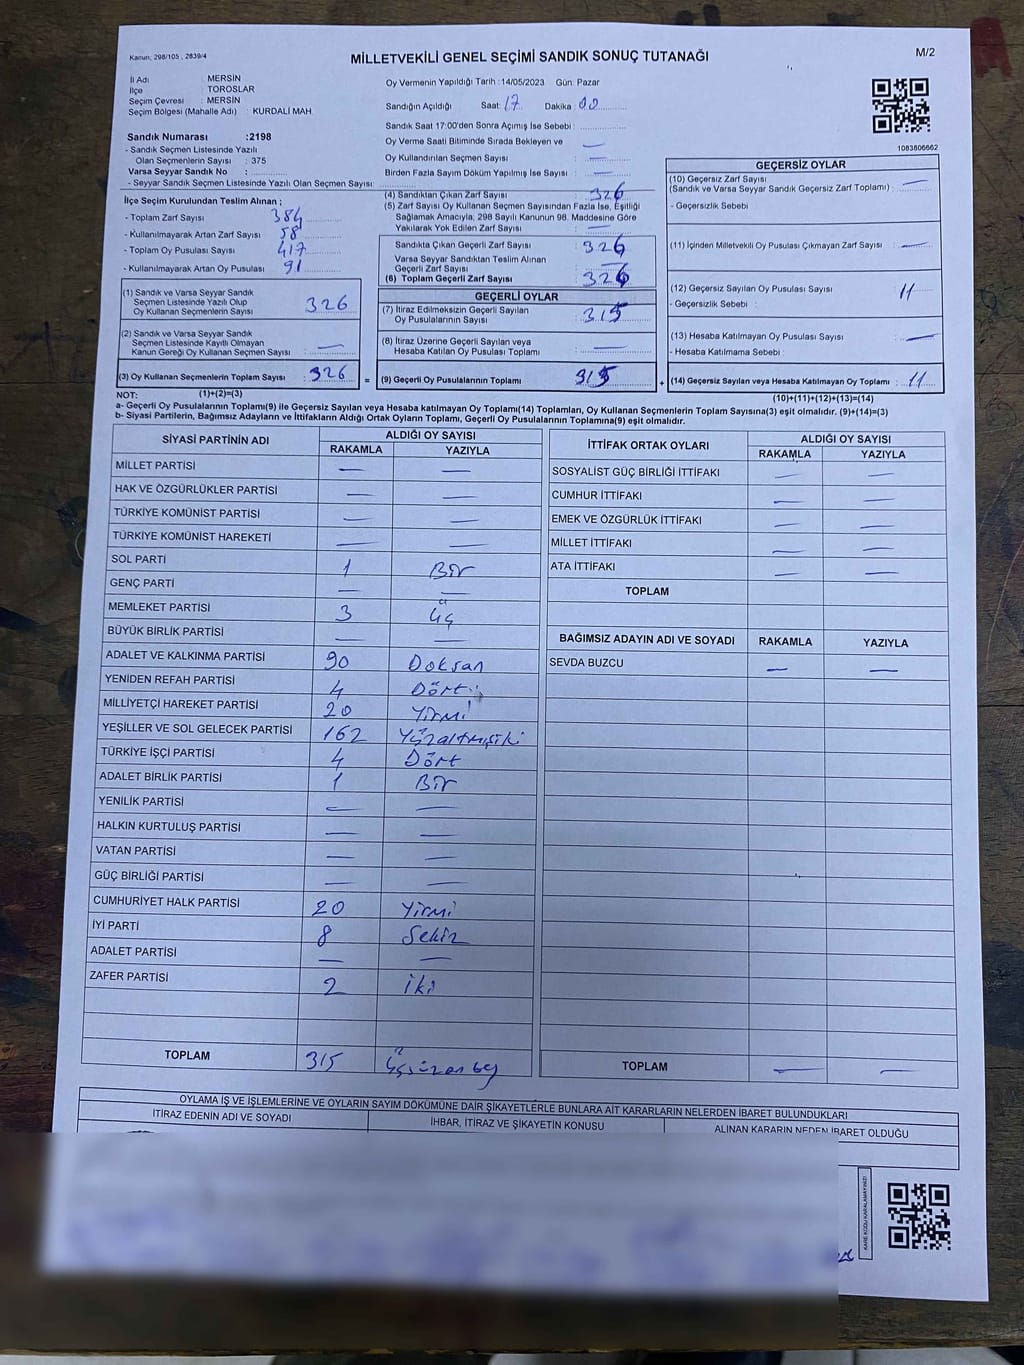 Kanun; 298/105 , 2839/4
MİLLETVEKİLİ GENEL SEÇİMİ SANDIK SONUÇ TUTANAĞI
M/2
İl Adı : MERSİN
İlçe : TOROSLAR
Seçim Çevresi : MERSİN
Seçim Bölgesi (Mahalle Adı) : KURDALİ MAH.
Sandık Numarası :2198
- Sandık Seçmen Listesinde Yazılı
Olan Seçmenlerin Sayısı : 375
Varsa Seyyar Sandık No :
- Seyyar Sandık Seçmen Listesinde Yazılı Olan Seçmen Sayısı:
Oy Vermenin Yapıldığı Tarih :14/05/2023 Gün: Pazar
Sandığın Açıldığı Saat: 17 Dakika: 00
Sandık Saat 17:00'den Sonra Açımış İse Sebebi :
Oy Verme Saati Bitiminde Sırada Bekleyen ve : —
Oy Kullandırılan Seçmen Sayısı : —
Birden Fazla Sayım Döküm Yapılmış İse Sayısı : —
1083806662
İlçe Seçim Kurulundan Teslim Alınan ;
- Toplam Zarf Sayısı : 384
- Kullanılmayarak Artan Zarf Sayısı : 58
- Toplam Oy Pusulası Sayısı : 417
- Kullanılmayarak Artan Oy Pusulası : 91
(1) Sandık ve Varsa Seyyar Sandık
Seçmen Listesinde Yazılı Olup
Oy Kullanan Seçmenlerin Sayısı : 326
(2) Sandık ve Varsa Seyyar Sandık
Seçmen Listesinde Kayıtlı Olmayan
Kanun Gereği Oy Kullanan Seçmen Sayısı : —
(3) Oy Kullanan Seçmenlerin Toplam Sayısı : 326
(1)+(2)=(3)
(4) Sandıktan Çıkan Zarf Sayısı : 326
(5) Zarf Sayısı Oy Kullanan Seçmen Sayısından Fazla İse, Eşitliği
Sağlamak Amacıyla, 298 Sayılı Kanunun 98. Maddesine Göre
Yakılarak Yok Edilen Zarf Sayısı : —
Sandıkta Çıkan Geçerli Zarf Sayısı : 326
Varsa Seyyar Sandıktan Teslim Alınan
Geçerli Zarf Sayısı : —
(6) Toplam Geçerli Zarf Sayısı : 326
GEÇERLİ OYLAR
(7) İtiraz Edilmeksizin Geçerli Sayılan
Oy Pusulalarının Sayısı : 315
(8) İtiraz Üzerine Geçerli Sayılan veya
Hesaba Katılan Oy Pusulası Toplamı : —
= (9) Geçerli Oy Pusulalarının Toplamı : 315
GEÇERSİZ OYLAR
(10) Geçersiz Zarf Sayısı : —
(Sandık ve Varsa Seyyar Sandık Geçersiz Zarf Toplamı)
- Geçersizlik Sebebi :
(11) İçinden Milletvekili Oy Pusulası Çıkmayan Zarf Sayısı : —
(12) Geçersiz Sayılan Oy Pusulası Sayısı : 11
- Geçersizlik Sebebi :
(13) Hesaba Katılmayan Oy Pusulası Sayısı : —
- Hesaba Katılmama Sebebi :
+ (14) Geçersiz Sayılan veya Hesaba Katılmayan Oy Toplamı : 11
(10)+(11)+(12)+(13)=(14)
NOT:
a- Geçerli Oy Pusulalarının Toplamı(9) ile Geçersiz Sayılan veya Hesaba katılmayan Oy Toplamı(14) Toplamları, Oy Kullanan Seçmenlerin Toplam Sayısına(3) eşit olmalıdır. (9)+(14)=(3)
b- Siyasi Partilerin, Bağımsız Adayların ve İttifakların Aldığı Ortak Oyların Toplamı, Geçerli Oy Pusulalarının Toplamına(9) eşit olmalıdır.
SİYASİ PARTİNİN ADI ALDIĞI OY SAYISI
RAKAMLA YAZIYLA
MİLLET PARTİSİ — —
HAK VE ÖZGÜRLÜKLER PARTİSİ — —
TÜRKİYE KOMÜNİST PARTİSİ — —
TÜRKİYE KOMÜNİST HAREKETİ — —
SOL PARTİ 1 Bir
GENÇ PARTİ — —
MEMLEKET PARTİSİ 3 Üç
BÜYÜK BİRLİK PARTİSİ — —
ADALET VE KALKINMA PARTİSİ 90 Doksan
YENİDEN REFAH PARTİSİ 4 Dört
MİLLİYETÇİ HAREKET PARTİSİ 20 Yirmi
YEŞİLLER VE SOL GELECEK PARTİSİ 162 Yüzaltmışiki
TÜRKİYE İŞÇİ PARTİSİ 4 Dört
ADALET BİRLİK PARTİSİ 1 Bir
YENİLİK PARTİSİ — —
HALKIN KURTULUŞ PARTİSİ — —
VATAN PARTİSİ — —
GÜÇ BİRLİĞİ PARTİSİ — —
CUMHURİYET HALK PARTİSİ 20 Yirmi
İYİ PARTİ 8 Sekiz
ADALET PARTİSİ — —
ZAFER PARTİSİ 2 İki
TOPLAM 315
İTTİFAK ORTAK OYLARI ALDIĞI OY SAYISI
RAKAMLA YAZIYLA
SOSYALİST GÜÇ BİRLİĞİ İTTİFAKI — —
CUMHUR İTTİFAKI — —
EMEK VE ÖZGÜRLÜK İTTİFAKI — —
MİLLET İTTİFAKI — —
ATA İTTİFAKI — —
TOPLAM
BAĞIMSIZ ADAYIN ADI VE SOYADI RAKAMLA YAZIYLA
SEVDA BUZCU — —
TOPLAM — —
OYLAMA İŞ VE İŞLEMLERİNE VE OYLARIN SAYIM DÖKÜMÜNE DAİR ŞİKAYETLERLE BUNLARA AİT KARARLARIN NELERDEN İBARET BULUNDUKLARI
İTİRAZ EDENİN ADI VE SOYADI İHBAR, İTİRAZ VE ŞİKAYETİN KONUSU ALINAN KARARIN NEDEN İBARET OLDUĞU
KARE KODU KARALAMAYINIZ!